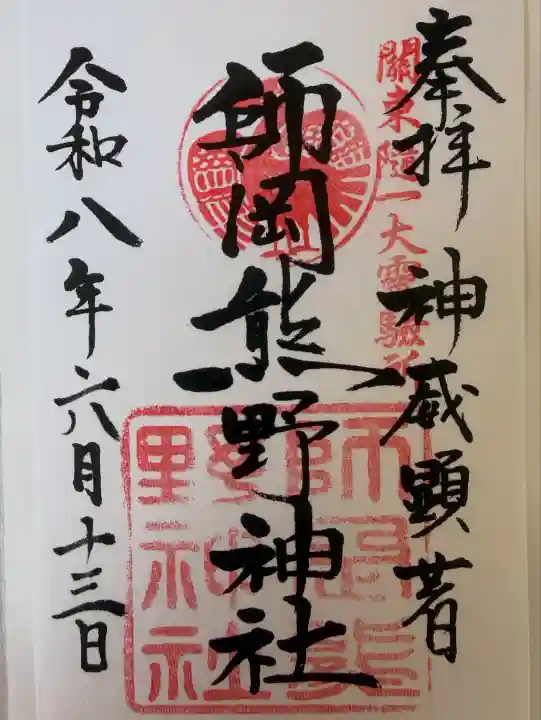 奉拝 神威顕著
關東隨一大靈驗所
師岡熊野神社
師岡熊野神社
令和八年六月十三日